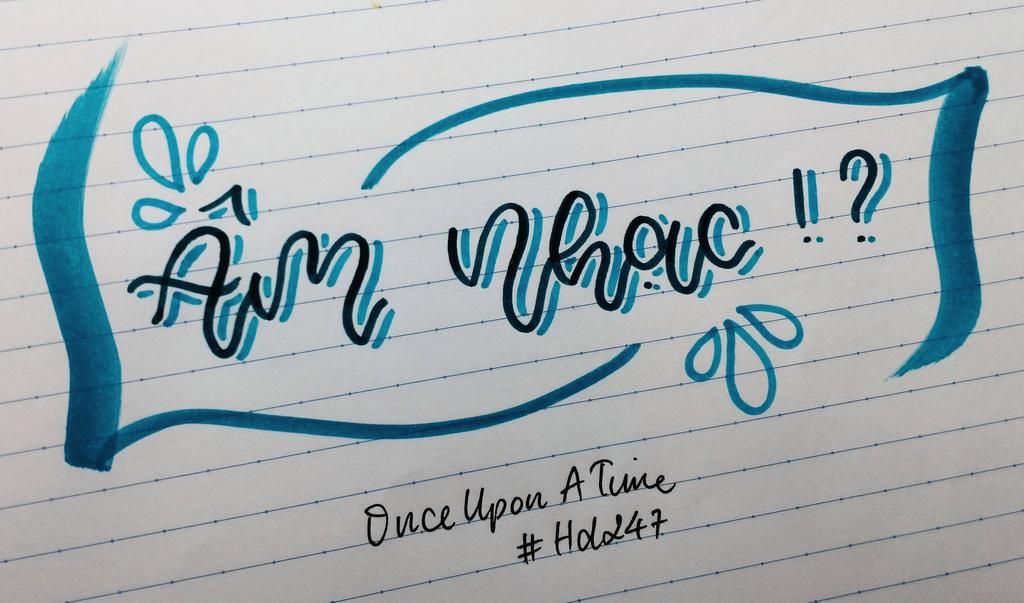 Âm nhạc !!?
Once Upon A Time
#Hda247